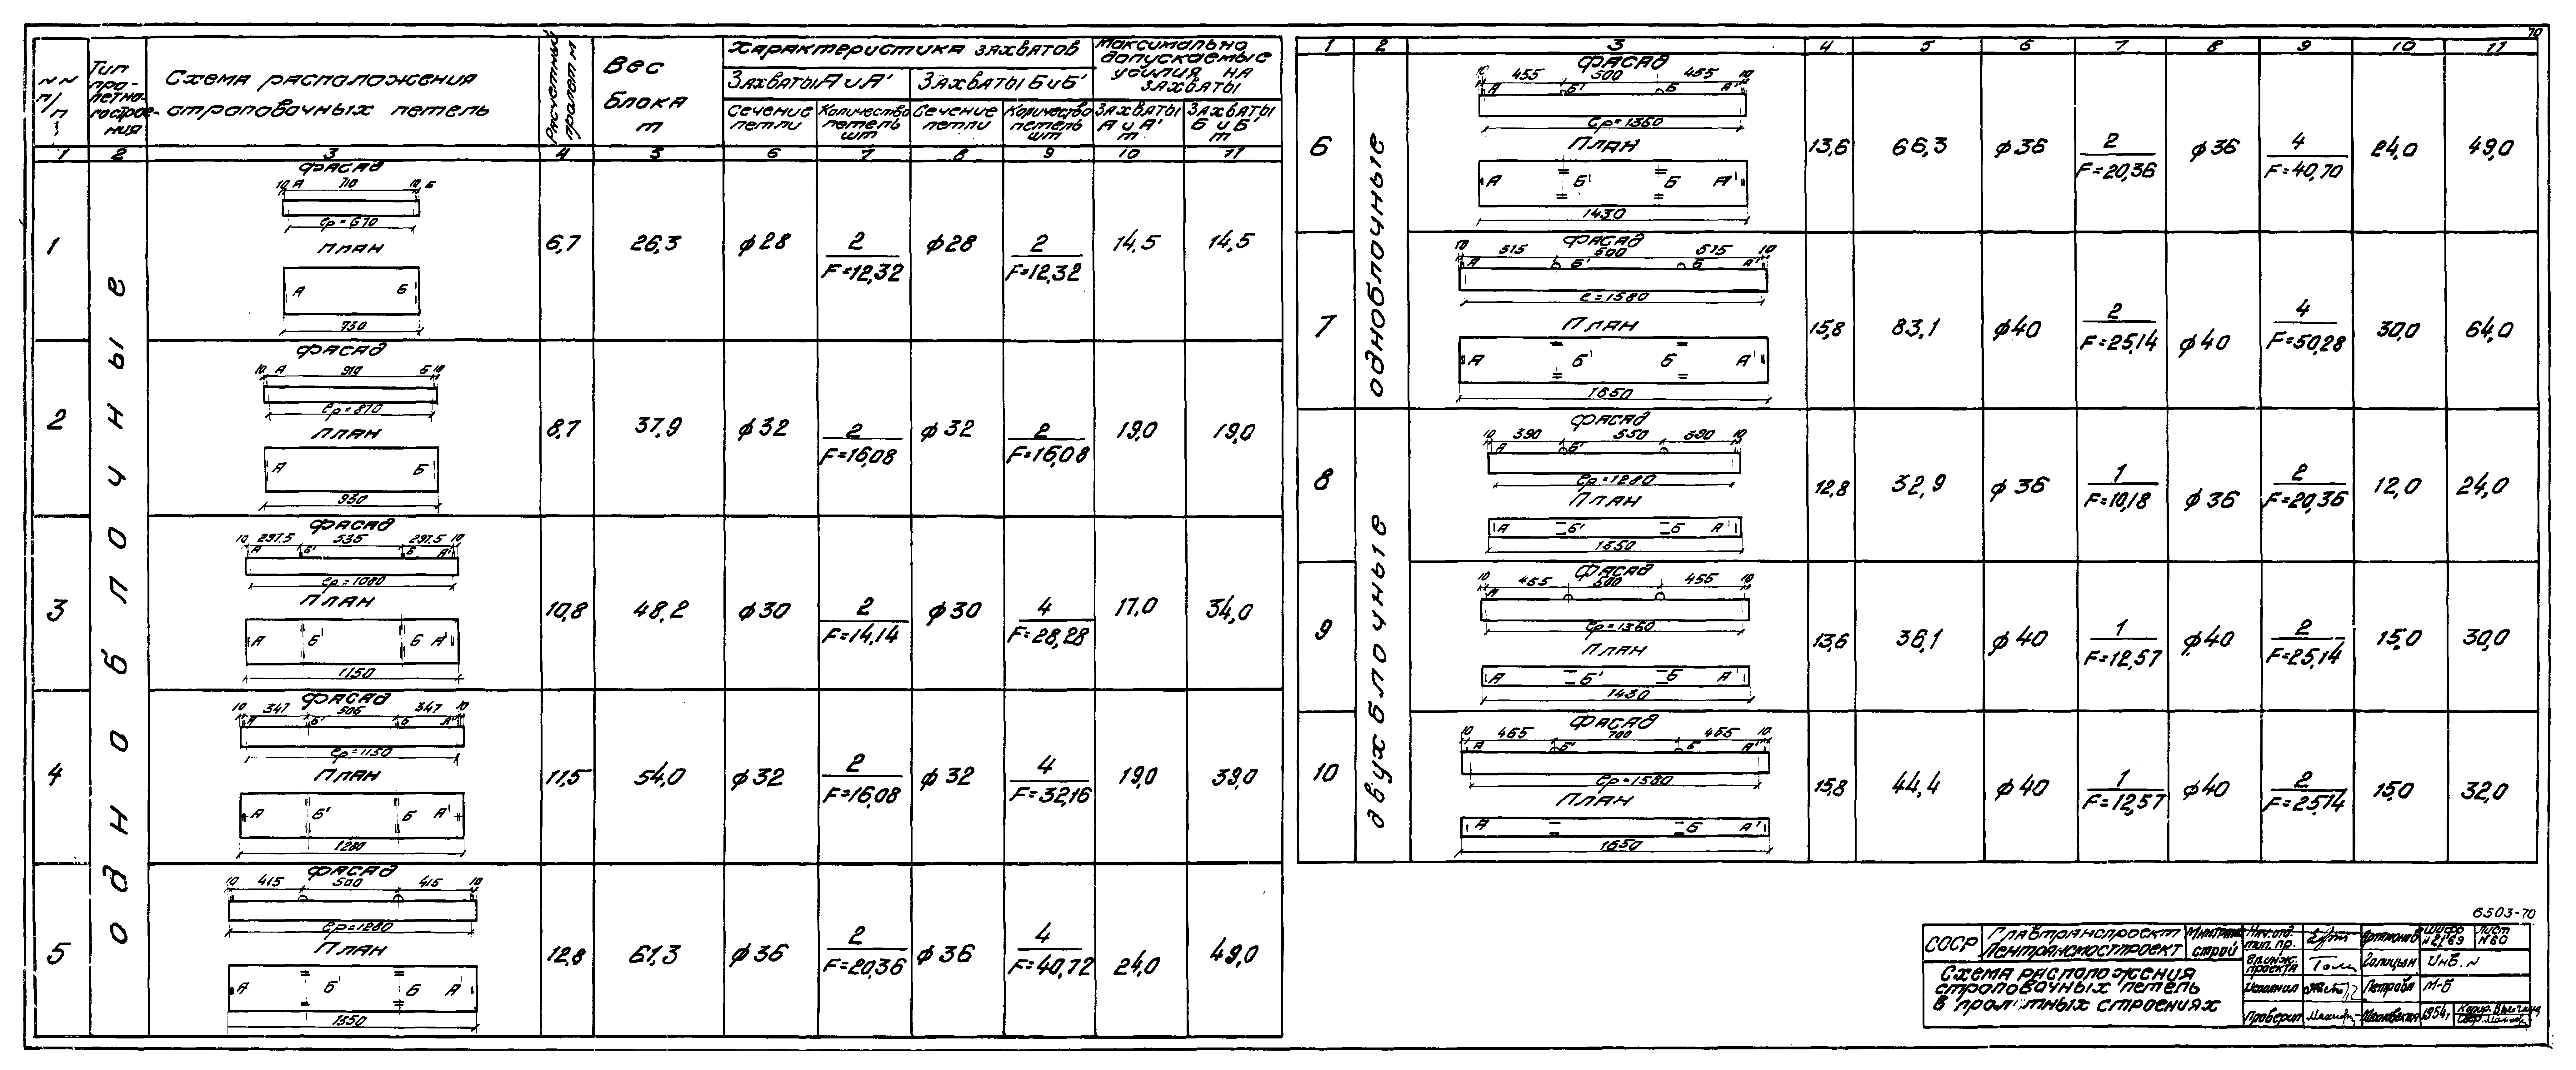 70
NN п/п
Тип пролетного строения
Схема расположения
строповочных петель
Расчетный пролет м
Вес
блока
т
Характеристика захватов
Захваты А и А'
Захваты Б и Б'
Сечение петли
Количество петель шт
Сечение петли
Количество петель шт
Максимально допускаемые усилия на захваты
Захваты А и А' т
Захваты Б и Б' т
1 2 3 4 5 6 7 8 9 10 11
одноблочные
1
фасад
10 А 710 10 Б
ер=670
план
А Б
730
6,7 26,3 ф28 2 F=12,32 ф28 2 F=12,32 14,5 14,5
2
фасад
10 А 910 Б 10
ер=870
план
А Б
930
8,7 37,9 ф32 2 F=16,08 ф32 2 F=16,08 19,0 19,0
3
фасад
10 297.5 535 297.5 10
А Б' Б А'
ер=1080
план
А Б' Б А'
1150
10,8 48,2 ф30 2 F=14,14 ф30 4 F=28,28 17,0 34,0
4
фасад
10 347 506 347 10
А Б' Б А'
ер=1150
план
А Б' Б А'
1220
11,5 54,0 ф32 2 F=16,08 ф32 4 F=32,16 19,0 39,0
5
фасад
10 415 500 415 10
ер=1280
план
А Б' Б А'
1350
12,8 61,3 ф36 2 F=20,36 ф36 4 F=40,72 24,0 49,0
1 2 3 4 5 6 7 8 9 10 11
одноблочные
6
фасад
10 455 500 455 10
А Б' Б А'
ер=1360
план
А Б' Б А'
1430
13,6 66,3 ф36 2 F=20,36 ф36 4 F=40,70 24,0 49,0
7
фасад
10 515 600 515 10
А Б' Б А'
е=1580
план
А Б' Б А'
1650
15,8 83,1 ф40 2 F=25,14 ф40 4 F=50,28 30,0 64,0
двухблочные
8
фасад
10 390 550 390 10
А Б'
ер=1280
план
А Б' Б А'
1350
12,8 32,9 ф36 1 F=10,18 ф36 2 F=20,36 12,0 24,0
9
фасад
10 455 500 455 10
А
ер=1360
план
А Б' Б А'
1430
13,6 36,1 ф40 1 F=12,57 ф40 2 F=25,14 15,0 30,0
10
фасад
10 465 700 465 10
А Б' Б А'
ер=1580
план
А Б А'
1650
15,8 44,4 ф40 1 F=12,57 ф40 2 F=25,14 15,0 32,0
6503-70
СССР
Главтранспроект
Лентрансмостпроект
Минтрансстрой
Схема расположения
строповочных петель
в пролетных строениях
Нач. отд. тип. пр. Артамонов
Гл. инж. проекта Голицын
Исполнил Петрова
Проверил
Шифр N2169
Лист N60
Инв. N
М-Б
1954г